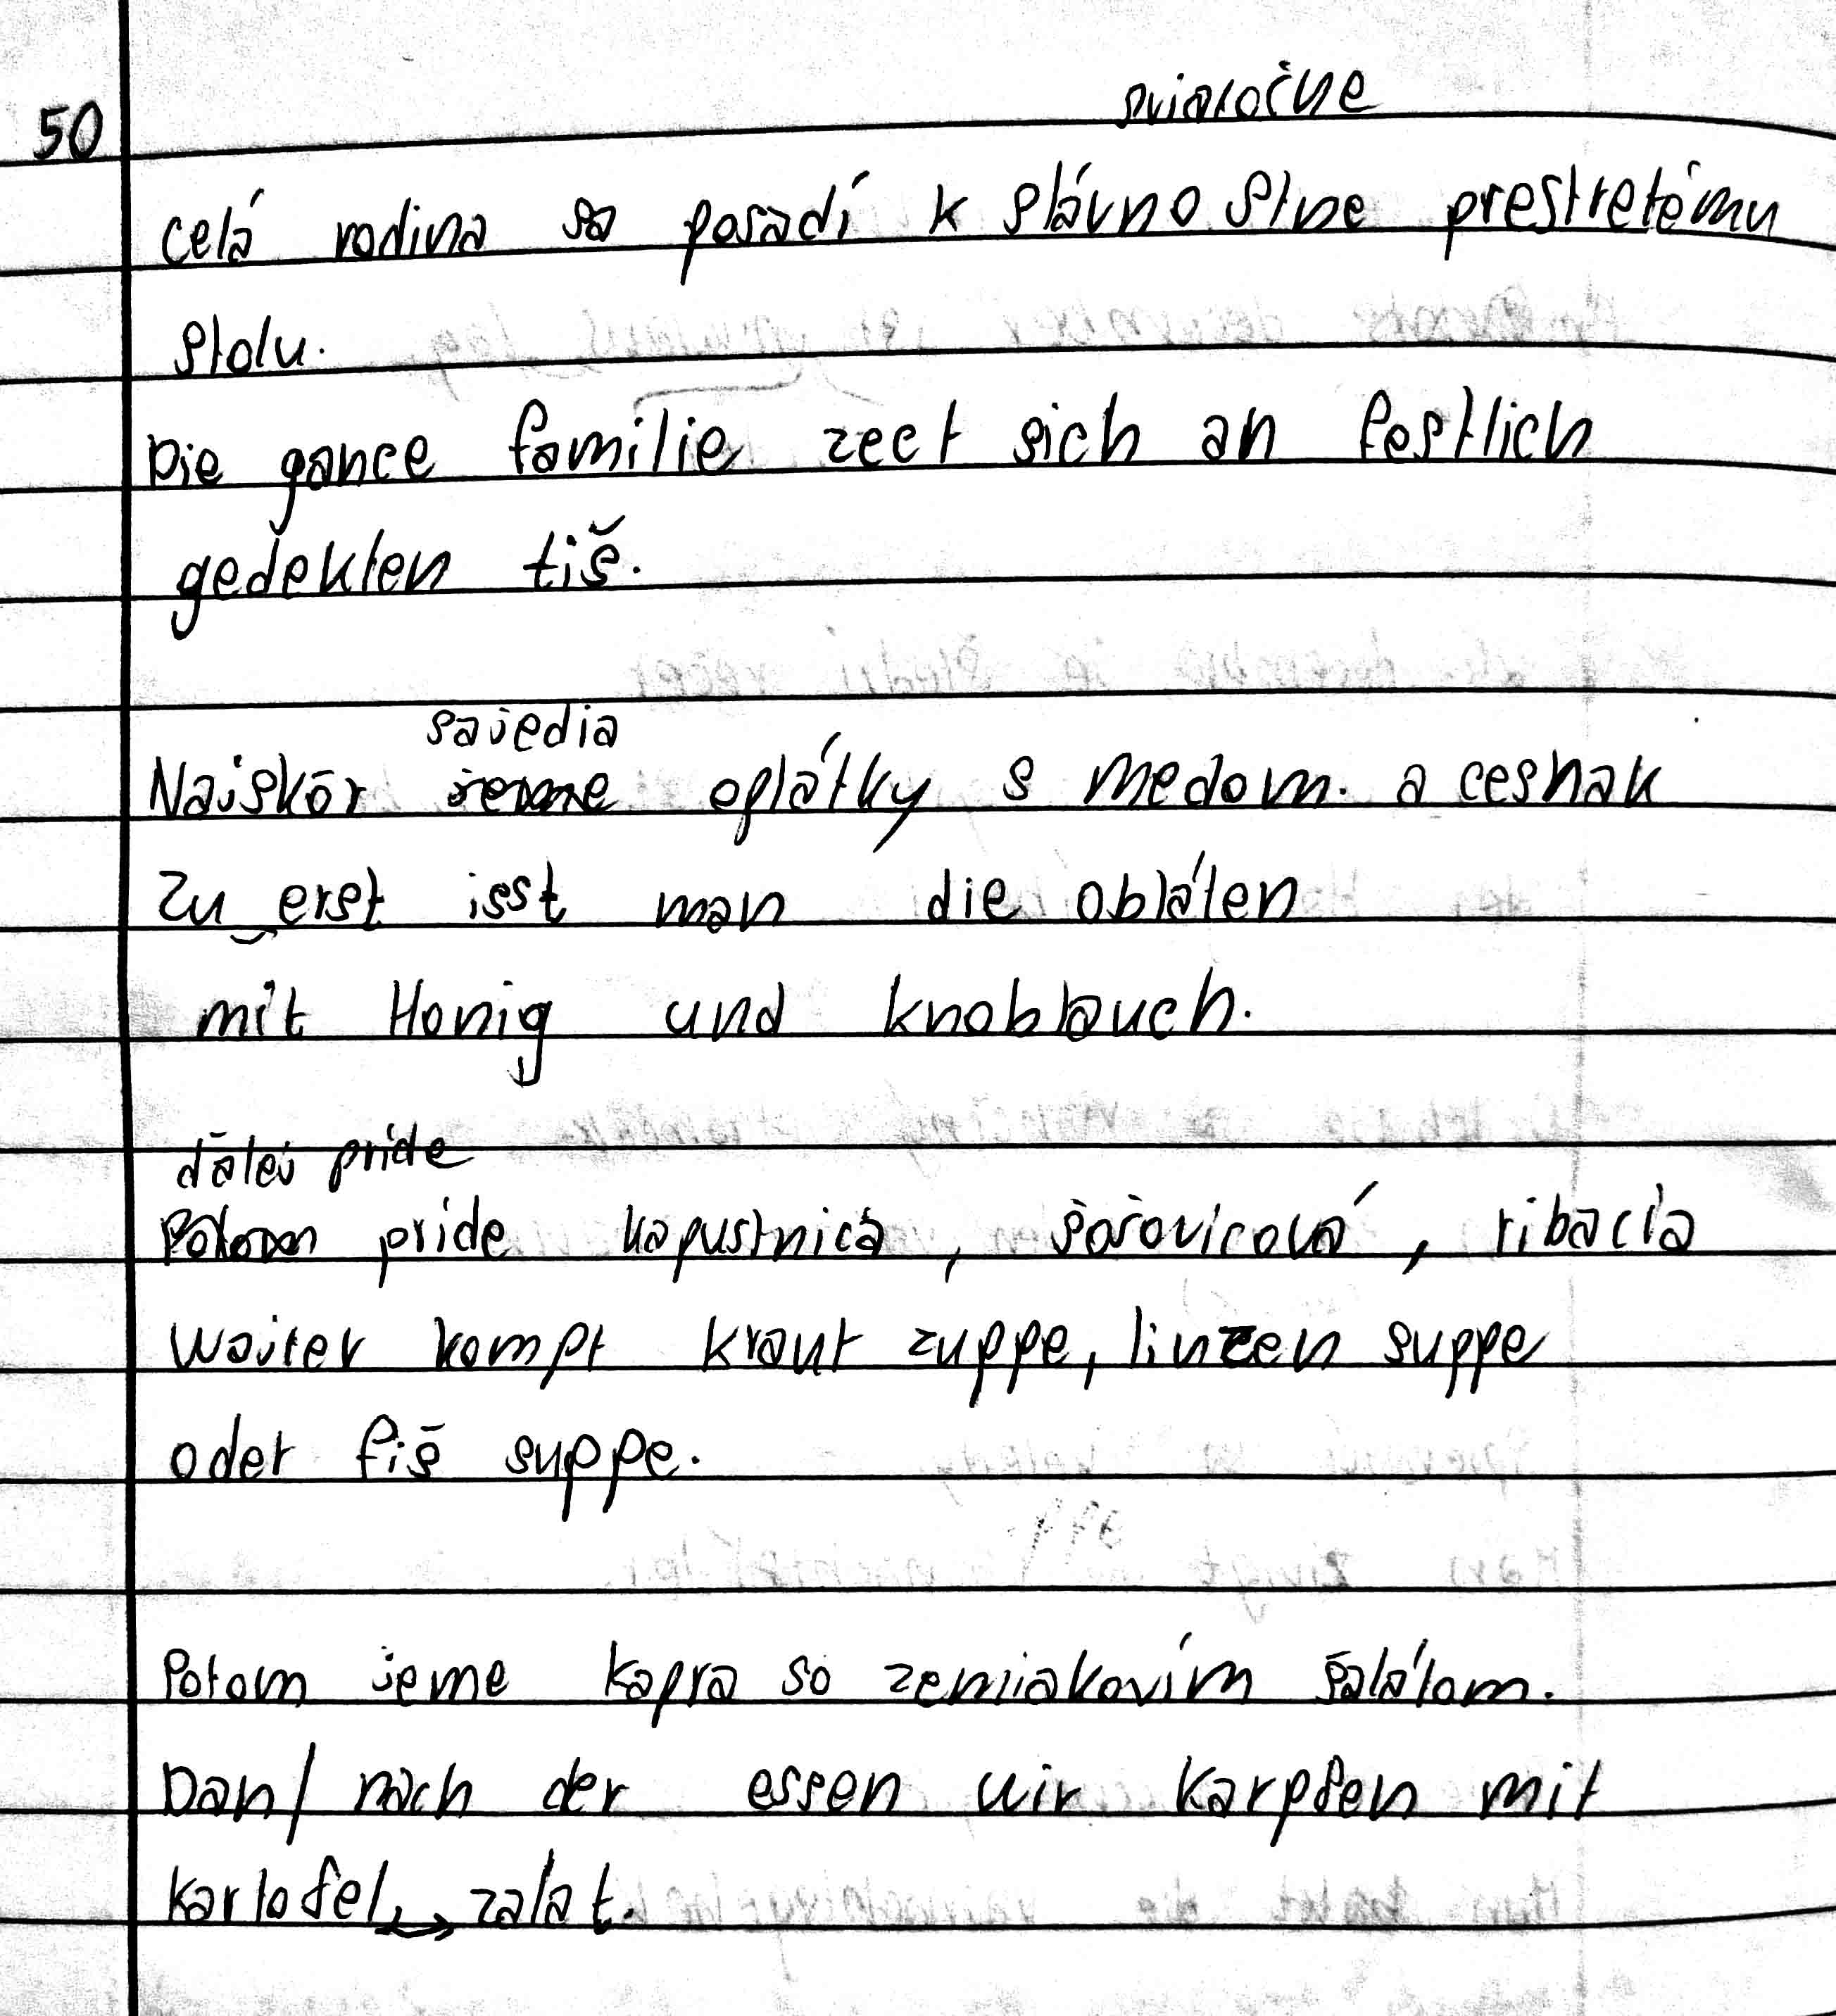 50
sviatočne
celá rodina sa posadí k slávnostne prestretému
stolu.
Die gance familie zect sich an festlich
gedekten tiš.
sajedia
Najskôr jeme oplátky s medom. a cesnak
Zu erst isst man die obláten
mit Honig und knoblauch.
ďalej príde
Potom príde kapustnica, šošovicová, ribacia
Waiter kompt kraut zuppe, linzen suppe
oder fiš suppe.
Potom jeme kapra so zemiakovím šalátom.
Dan/ nach der essen wir karpfen mit
kartofel zalat.